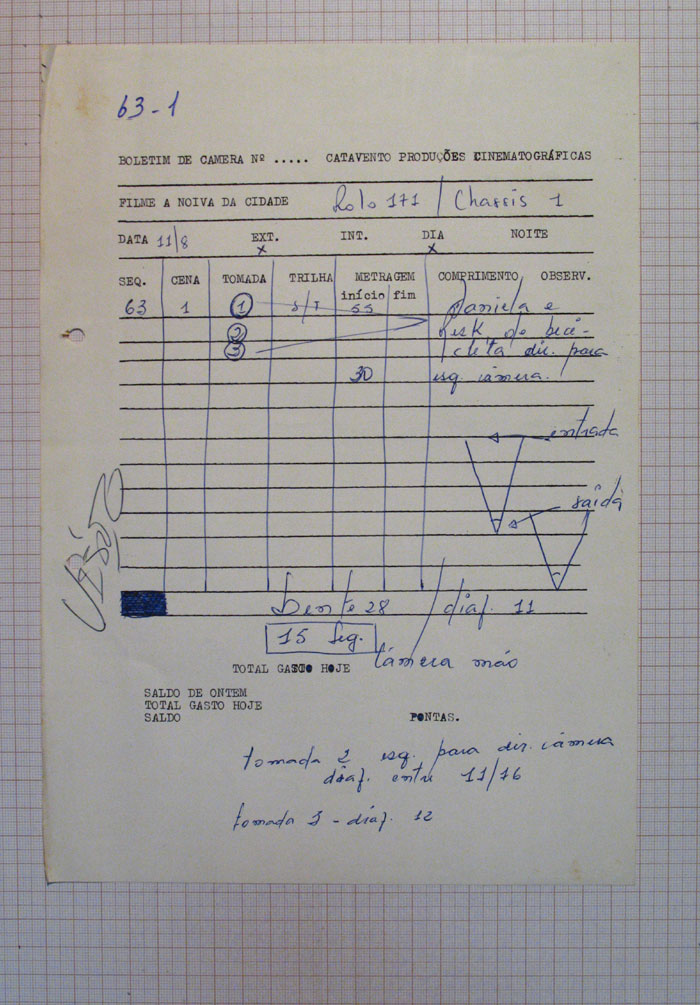 63-1
BOLETIM DE CAMERA Nº ..... CATAVENTO PRODUÇÕES CINEMATOGRÁFICAS
FILME A NOIVA DA CIDADE Rolo 171 / Chassis 1
DATA 11/8 EXT. INT. DIA NOITE
x x
SEQ. CENA TOMADA TRILHA METRAGEM COMPRIMENTO OBSERV.
início fim
63 1 1 S/T 55 Daniela e
2 de bici-
3 cleta dir. para
30 esq. câmera.
entrada
saída
Lente 28 / diaf. 11
15 seg.
Câmera mão
TOTAL GASTO HOJE
SALDO DE ONTEM
TOTAL GASTO HOJE
SALDO PONTAS.
tomada 2 esq. para dir. câmera
diaf. entre 11/16
tomada 3 - diaf. 12